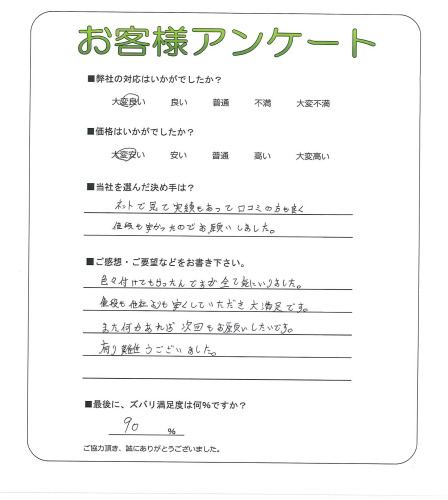 お客様アンケート
■弊社の対応はいかがでしたか？
大変良い 良い 普通 不満 大変不満
■価格はいかがでしたか？
大変安い 安い 普通 高い 大変高い
■当社を選んだ決め手は？
ネットで見て実績もあって口コミの方も良く
値段も安かったのでお願いしました。
■ご感想・ご要望などをお書き下さい。
色々付けてもらったんですが全て気にいりました。
値段も他社よりも安くしていただき大満足です。
また何かあれば次回もお願いしたいです。
有り難うございました。
■最後に、ズバリ満足度は何%ですか？
90 %
ご協力頂き、誠にありがとうございました。